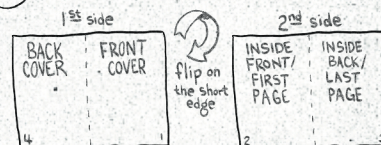 1st side
BACK COVER
FRONT COVER
4
1
flip on
the short
edge
2nd side
INSIDE
FRONT/
FIRST
PAGE
INSIDE
BACK/
LAST
PAGE
2